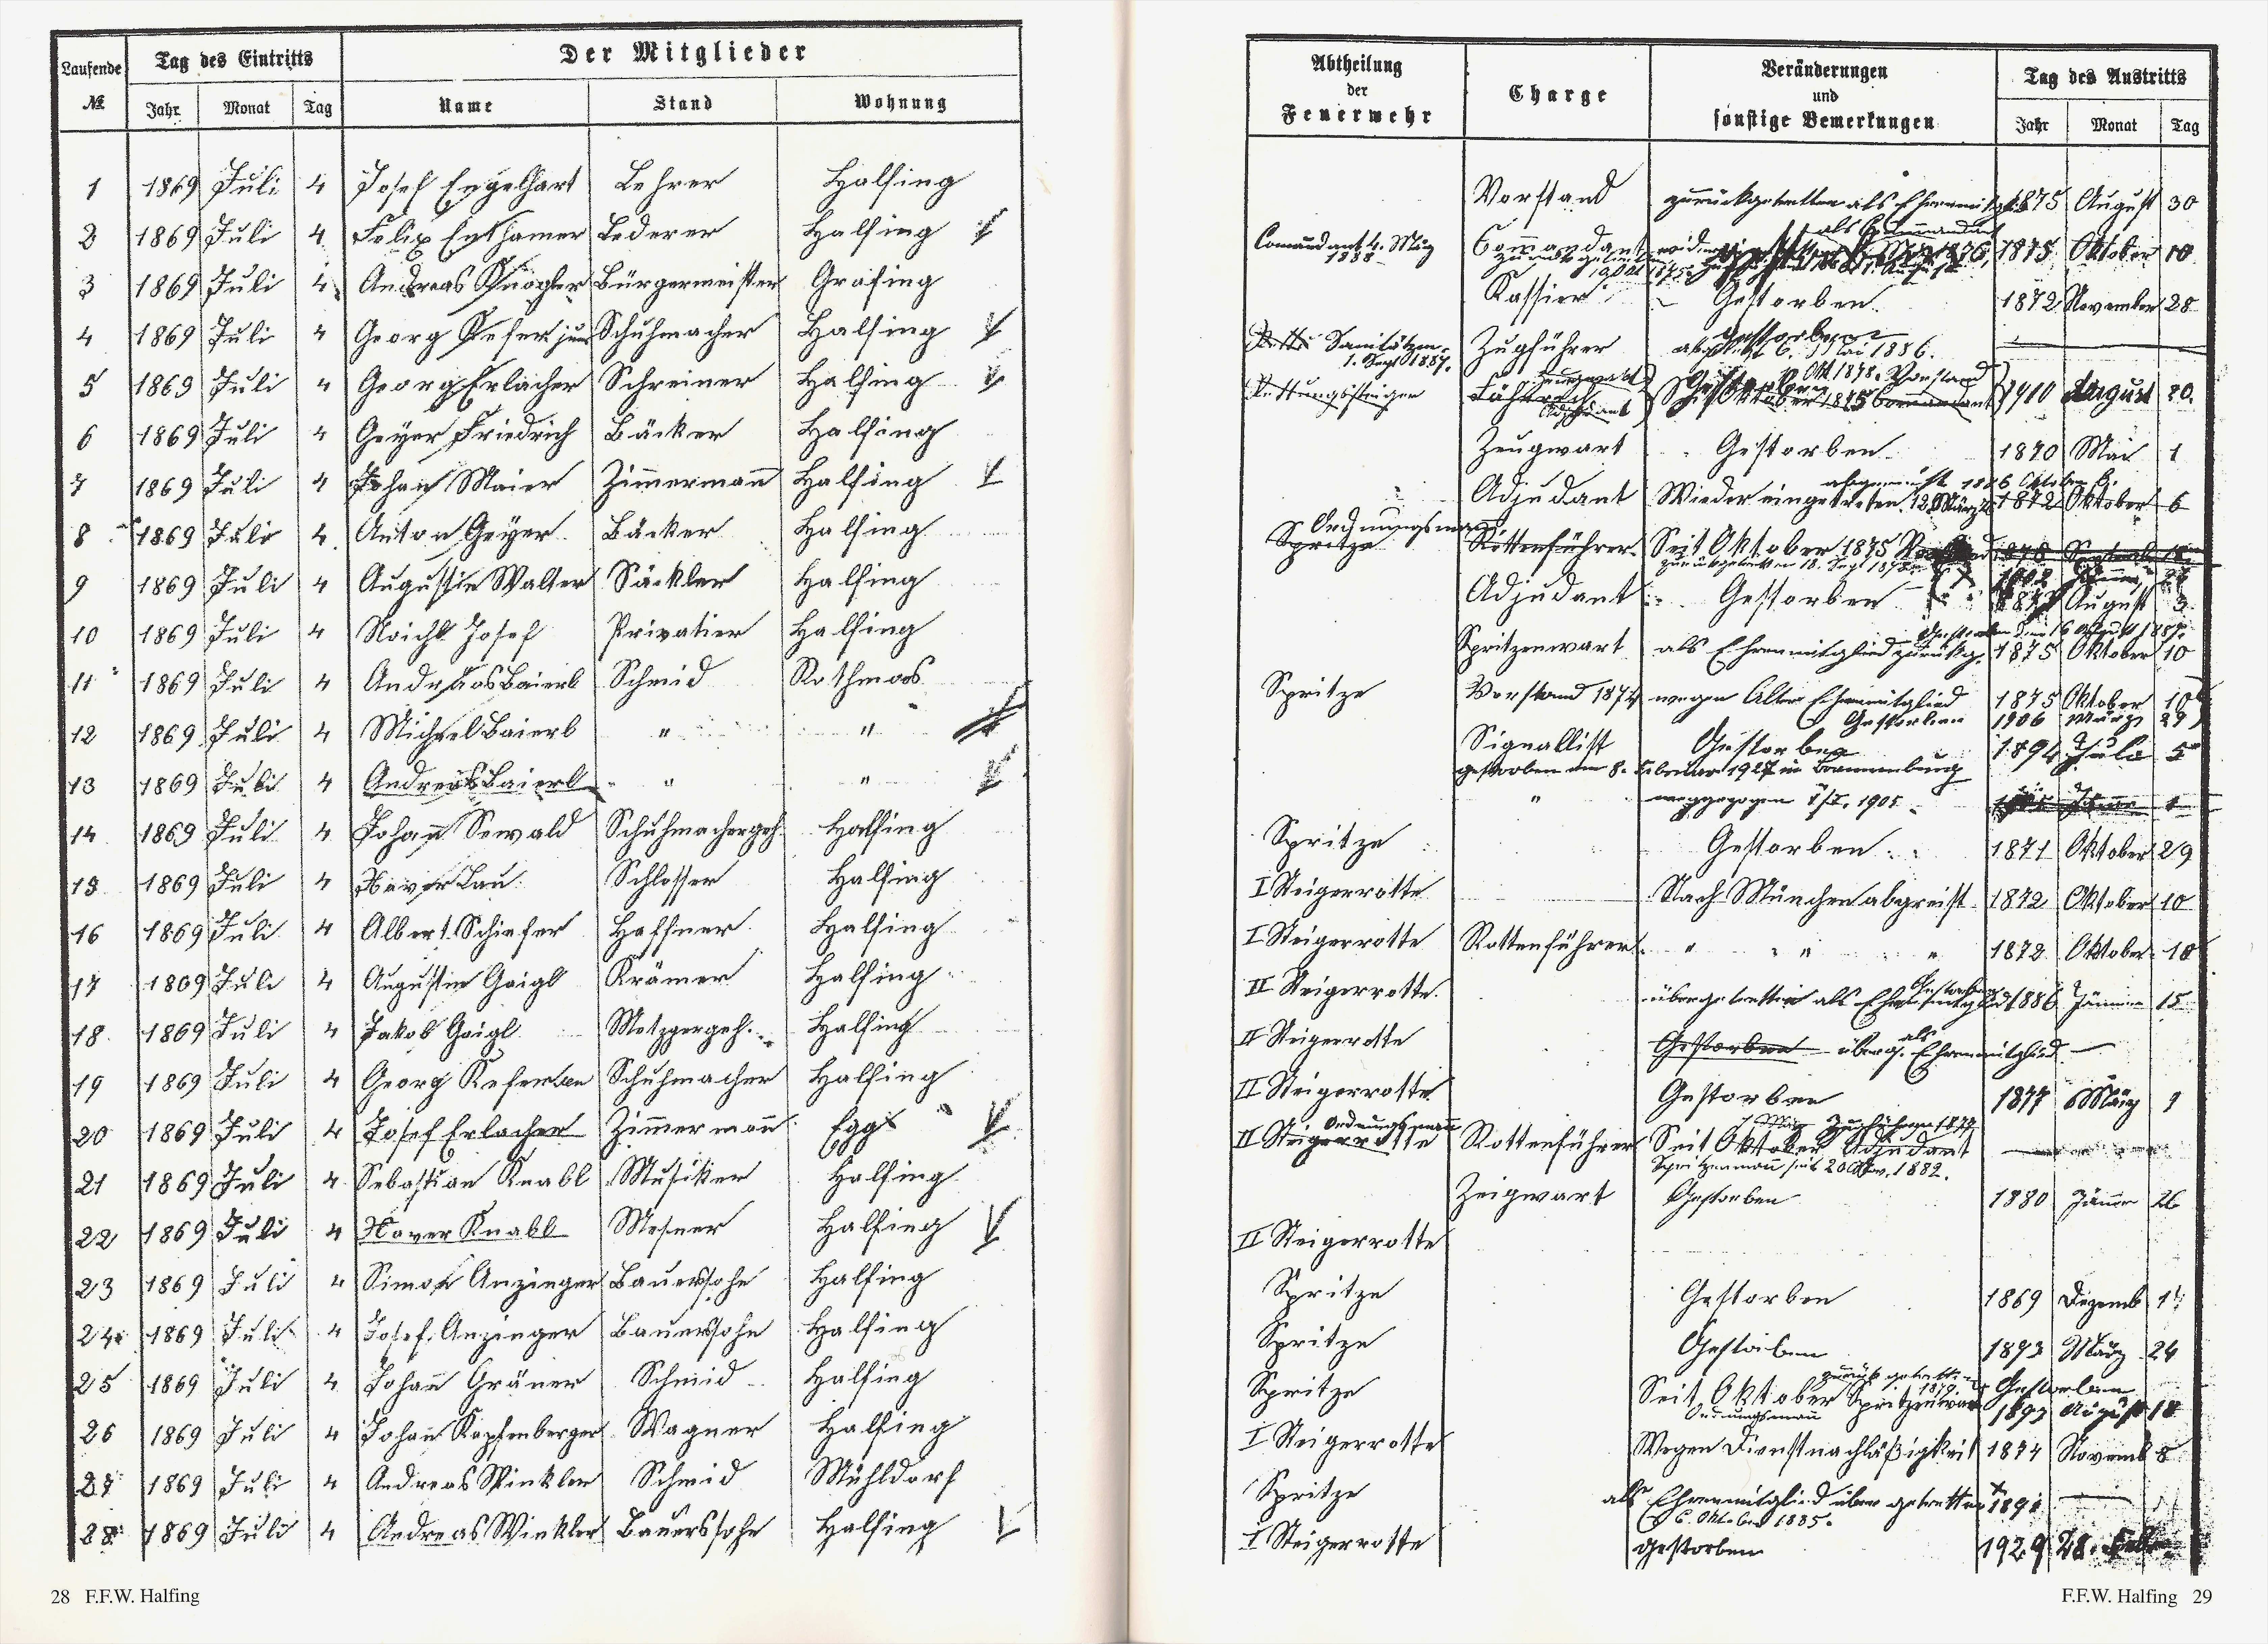 Laufende №
Tag des Eintritts
Der Mitglieder
Jahr Monat Tag
Name Stand Wohnung
1 1869 Juli 4 Josef Engelhart Lehrer Halfing
2 1869 Juli 4 Felix Enthamer Lederer Halfing
3 1869 Juli 4 Andreas Knogler Bürgermeister Grafing
4 1869 Juli 4 Georg Kefer jun Schuhmacher Halfing
5 1869 Juli 4 Georg Erlacher Schreiner Halfing
6 1869 Juli 4 Geyer Friedrich Bäcker Halfing
7 1869 Juli 4 Johan Maier Zimmermann Halfing
8 1869 Juli 4 Anton Geyer Bäcker Halfing
9 1869 Juli 4 Augustin Walter Säckler Halfing
10 1869 Juli 4 Noichl Josef Privatier Halfing
11 1869 Juli 4 Andreas Baierl Schmid Rothmoos
12 1869 Juli 4 Michael Baierl " "
13 1869 Juli 4 Andreas Baierl " "
14 1869 Juli 4 Johann Sewald Schuhmachergeh. Halfing
15 1869 Juli 4 Xaver Lau Schlosser Halfing
16 1869 Juli 4 Albert Schiefer Haffner Halfing
17 1869 Juli 4 Augustin Gaigl Krämer Halfing
18 1869 Juli 4 Jakob Gaigl Metzgergeh. Halfing
19 1869 Juli 4 Georg Kefer Schuhmacher Halfing
20 1869 Juli 4 Josef Erlacher Zimmermann Egg
21 1869 Juli 4 Sebastian Knabl Musiker Halfing
22 1869 Juli 4 Xaver Knabl Mesner Halfing
23 1869 Juli 4 Simon Anzinger Bauerssohn Halfing
24 1869 Juli 4 Josef Anzinger Bauerssohn Halfing
25 1869 Juli 4 Johann Gräner Schmid Halfing
26 1869 Juli 4 Johann Kapfenberger Wagner Halfing
27 1869 Juli 4 Andreas Winkler Schmid Mühldorf
28 1869 Juli 4 Andreas Winkler Bauerssohn Halfing
28 F.F.W. Halfing
Abtheilung der Feuerwehr
Charge
Veränderungen und sonstige Bemerkungen
Tag des Austritts
Jahr Monat Tag
Vorstand zurückgetretten als Ehrenmitgl. 1875 August 30
als Commandant
Comandant 4. März 1888 Commandant 1875 Oktober 10
Kassier Gestorben 1872 November 28
Gestorben
Sanitätsm. 1. Sept 1887. Zugführer 6. Mai 1886.
Zeugwart Okt. 1878. Vorstand
Rettungssteiger Adjutant Oktober 1875 Commandant 1910 August 20.
Zeugwart Gestorben 1870 Mai 1
1886 Oktober 6.
Adjudant Wieder eingetreten 12 März 1872 Oktober 6
Ordnungsmann
Spritze Rottenführer Seit Oktober 1875
zurückgetretten 18. Sept 1878
Adjudant Gestorben August 3
Gestorben den 16 August 1887.
Spritzenwart als Ehrenmitglied zurückg. 1875 Oktober 10
Spritze Vorstand 1874 wegen Alter Ehrenmitglied 1875 Oktober 10
Gestorben 1906 März 29
Signallist Gestorben 1894 Juli 5
gestorben am 8. Februar 1927 in Brannenburg
" weggezogen 1/I. 1905
Spritze Gestorben 1871 Oktober 29
I Steigerrotte Nach München abgreist 1872 Oktober 10
I Steigerrotte Rottenführer " " " 1872 Oktober 10
Gestorben
II Steigerrotte übergetretten als Ehrenmitglied 1886 Jänner 15
II Steigerrotte Gestorben überg. als Ehrenmitglied
II Steigerrotte Gestorben 1877 März 9
Ordnungsmann Zugführer 1877
II Steigerrotte Rottenführer Seit Oktober Adjudant
Spritzenmann seit 20 Nov. 1882.
Zeigwart Gestorben 1880 Jänner 26
II Steigerrotte
Spritze Gestorben 1869 Dezemb
Spritze Gestorben 1893 März 24
zurück getretten 1879.
Spritze Seit Oktober Spritzenwart Gestorben
Ordnungsmann 1893 August 18
I Steigerrotte Wegen Dienstnachläßigkeit 1874 Novemb 8
Spritze als Ehrenmitglied über getretten
6 Oktober 1885.
I Steigerrotte gestorben 1929 28. Febr.
F.F.W. Halfing 29